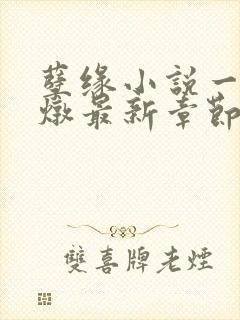 孽缘小說一
燉最新章節
雙喜牌老煙